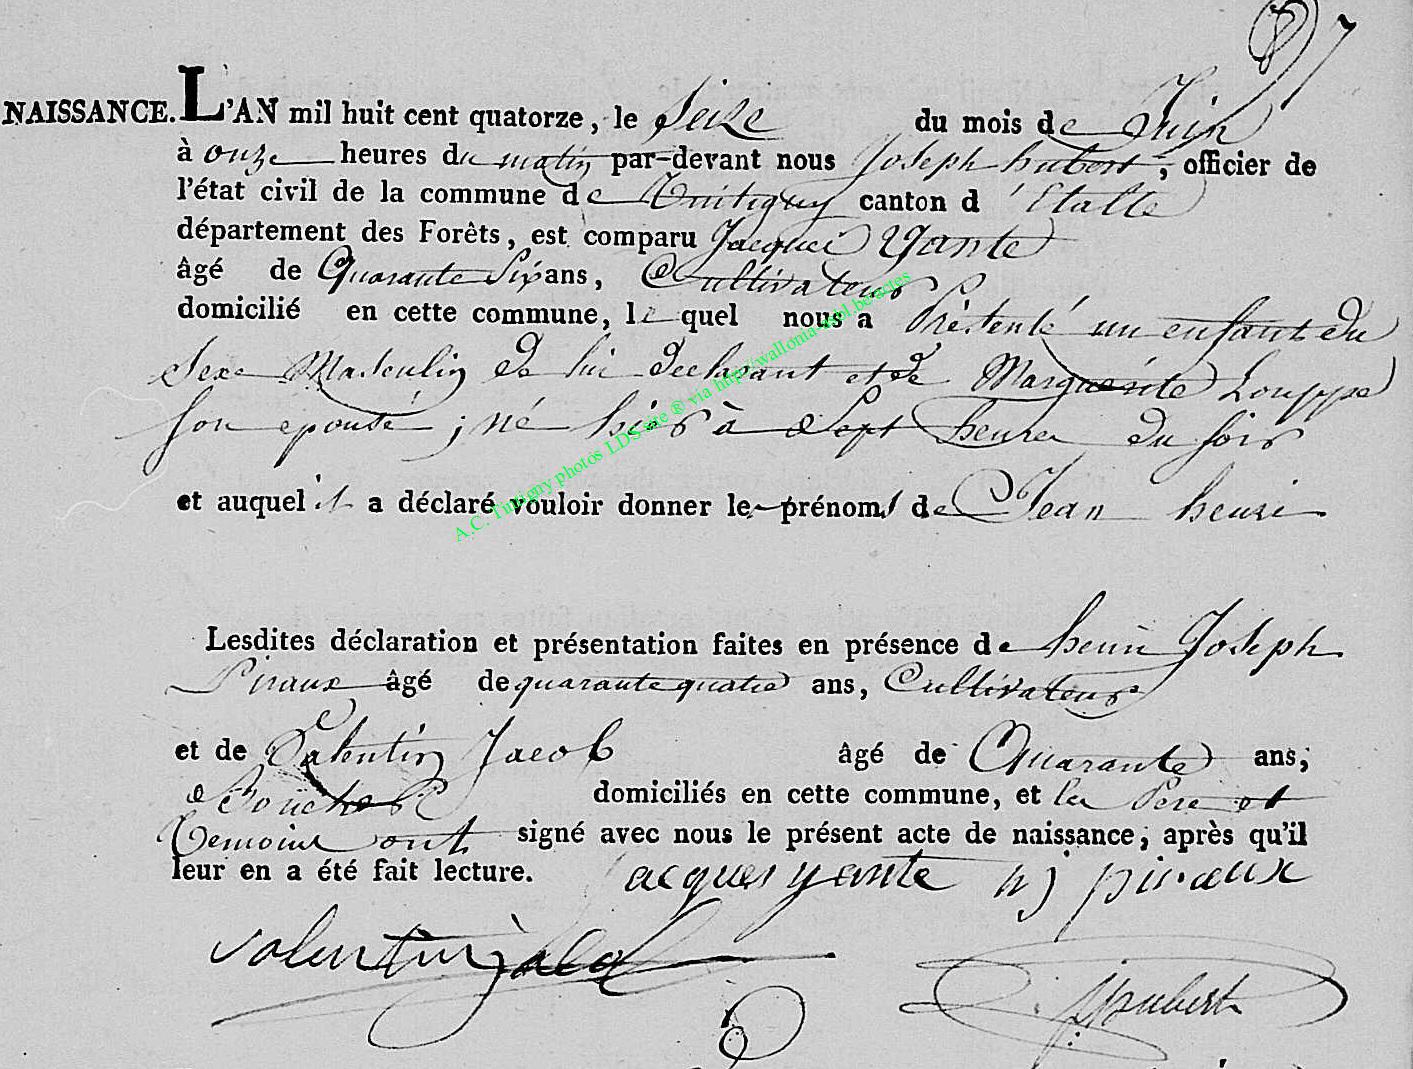 NAISSANCE. L'AN mil huit cent quatorze, le Seize du mois de Juin
à onze heures du matin par-devant nous Joseph hubert, officier de
l'état civil de la commune de Tintigny canton d'Etalle
département des Forêts, est comparu Jacques Yante
âgé de Quarante Six ans, Cultivateur
domicilié en cette commune, le quel nous a Présenté un enfant du
Sexe Masculin de lui declarant et de Marguérite Louppe
son epouse, né hier à Sept heures du soir
et auquel il a déclaré vouloir donner les prénoms de Jean henri
Lesdites déclaration et présentation faites en présence de henri Joseph
Piraux âgé de quarante quatre ans, Cultivateur
et de Valentin Jacob âgé de Quarante ans,
Boucher domiciliés en cette commune, et les Pere et
Temoins ont signé avec nous le présent acte de naissance, après qu'il
leur en a été fait lecture. jacques yante h j piraux
valentin jacob
jhubert
A.C. Tintigny photos LDS site ® via http://wallonia-asbl.be/actes